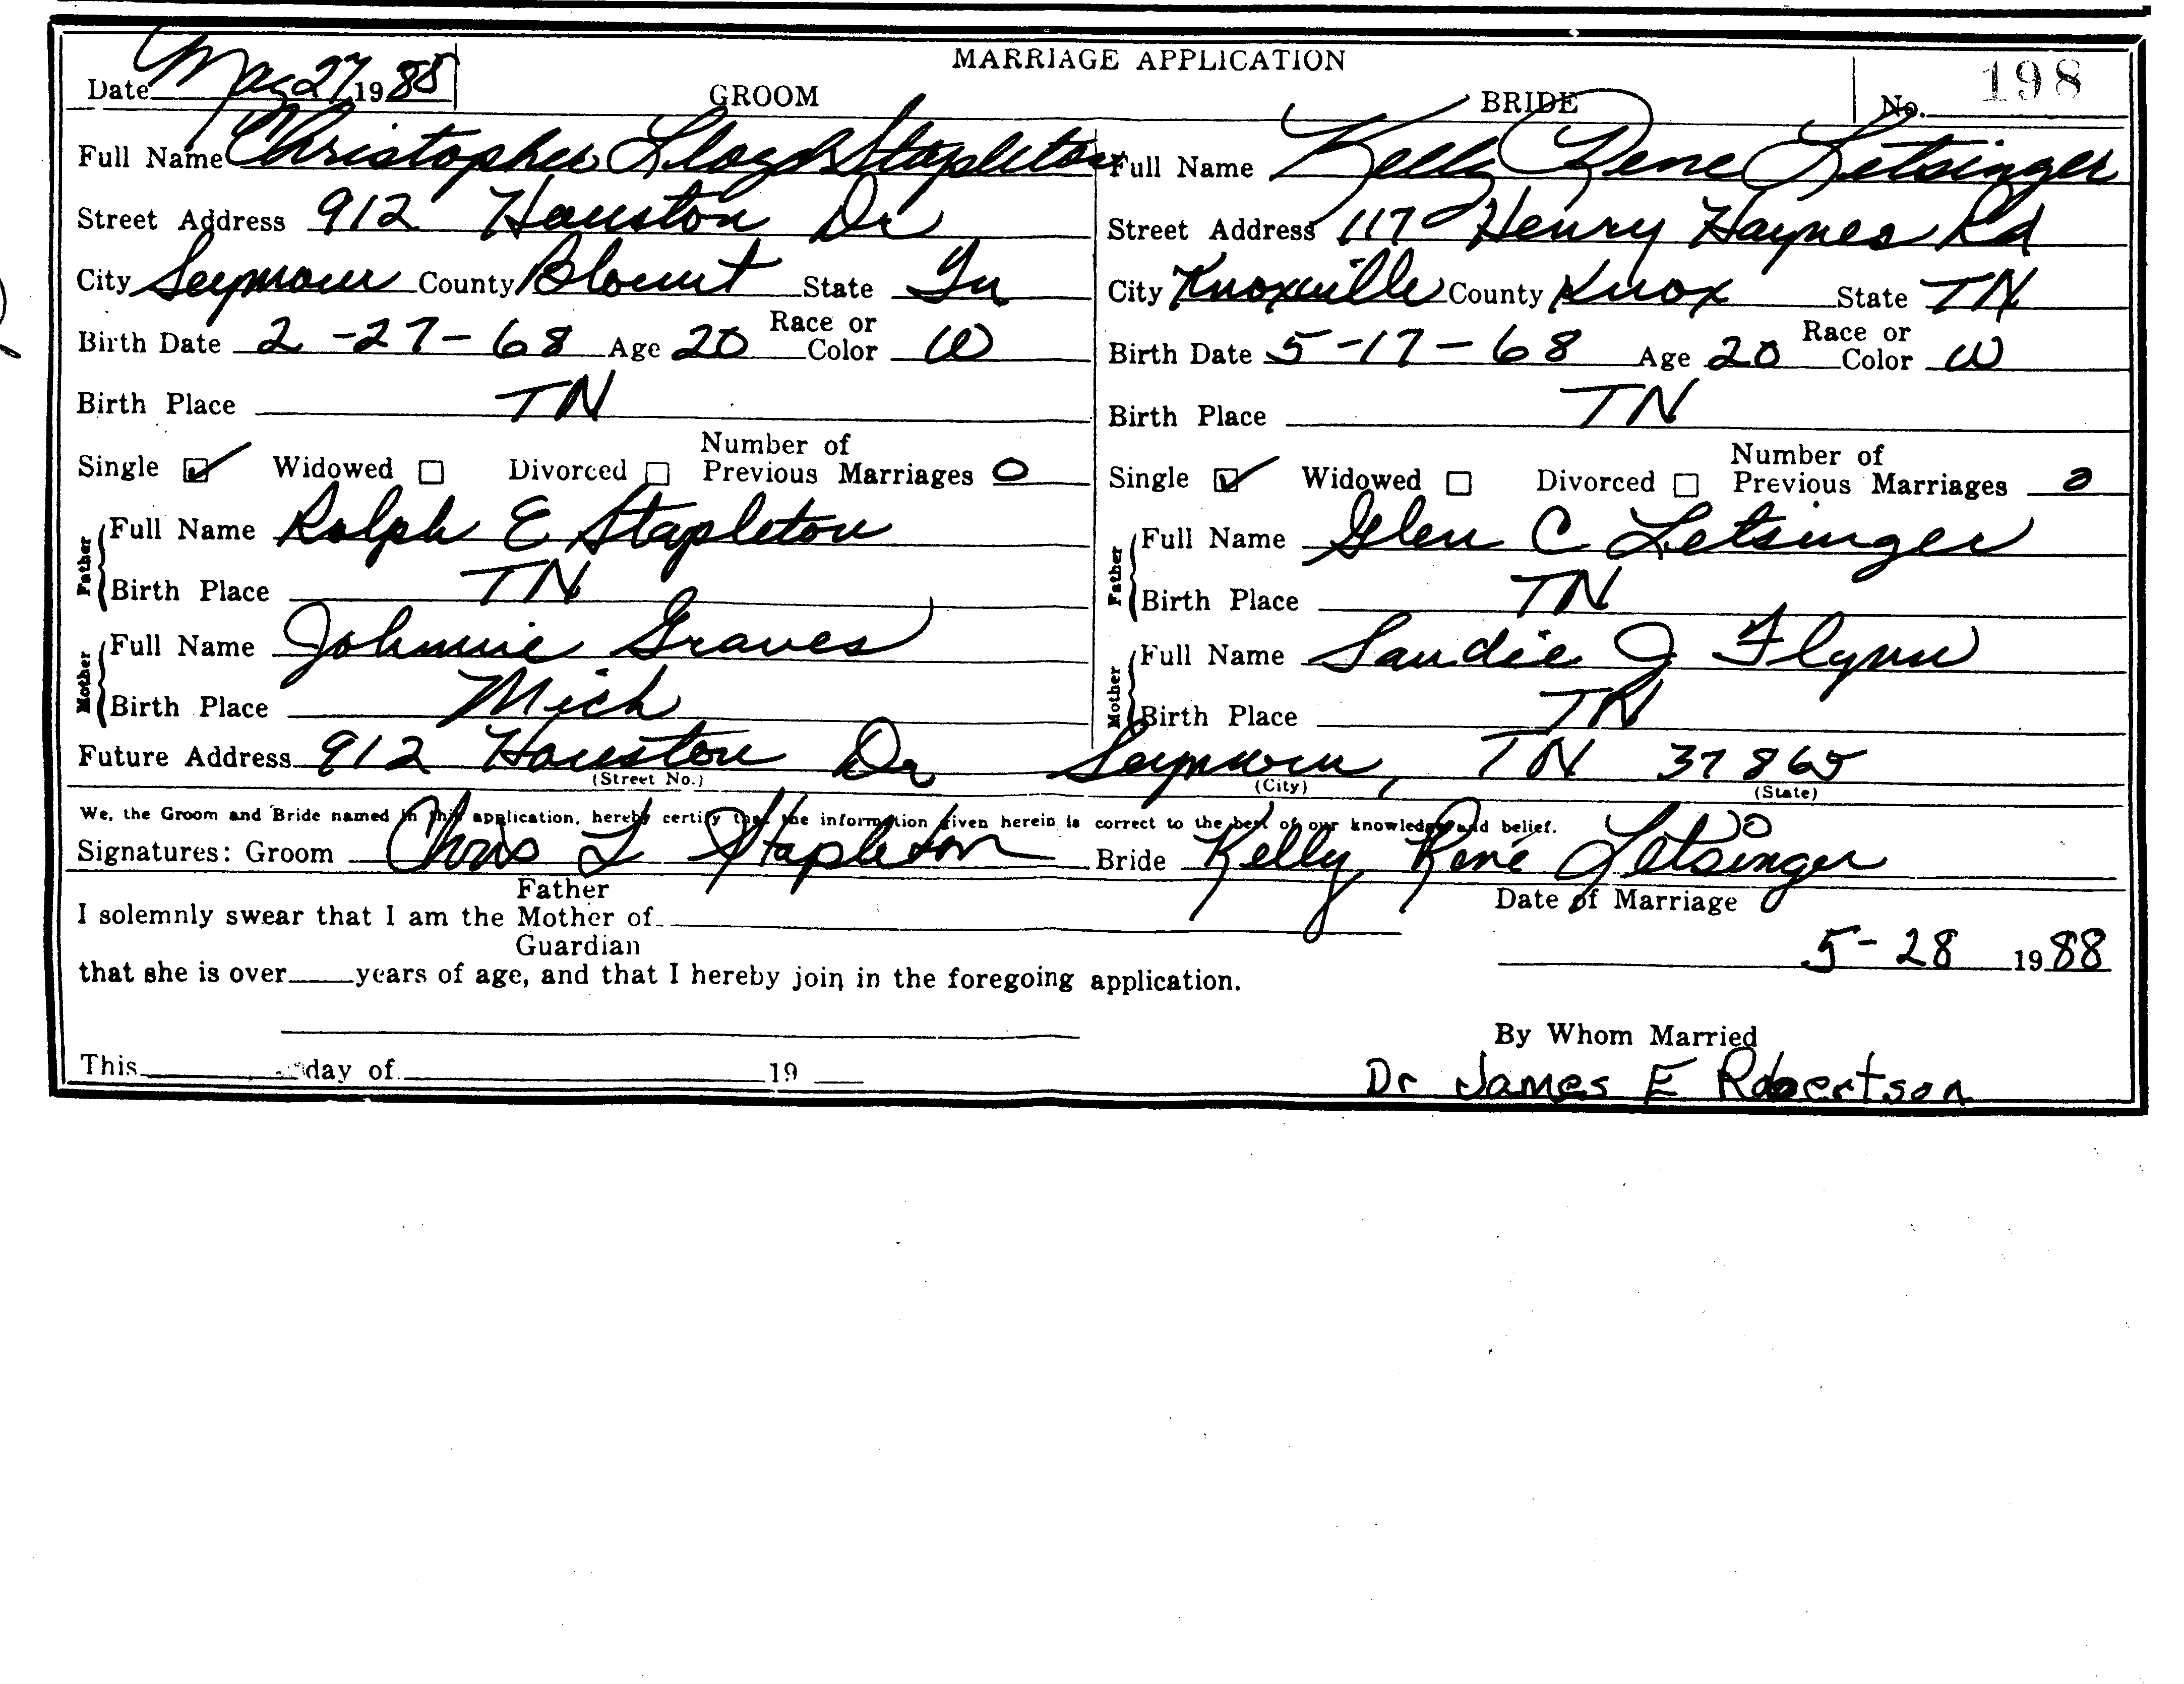 MARRIAGE APPLICATION
Date May 27, 1988 GROOM BRIDE No. 198
Full Name Christopher Lloyd Stapleton Full Name Kelly Rene Letsinger
Street Address 912 Houston Dr Street Address 117 Henry Haynes Rd
City Seymour County Blount State Tn City Knoxville County Knox State TN
Birth Date 2-27-68 Age 20 Race or Color W Birth Date 5-17-68 Age 20 Race or Color W
Birth Place TN Birth Place TN
Single ☑ Widowed ☐ Divorced ☐ Number of Previous Marriages 0 Single ☑ Widowed ☐ Divorced ☐ Number of Previous Marriages 0
Father Full Name Ralph E Stapleton Father Full Name Glen C Letsinger
Birth Place TN Birth Place TN
Mother Full Name Johnnie Graves Mother Full Name Sandie J Flynn
Birth Place Mich Birth Place TN
Future Address 912 Houston Dr Seymour, TN 37865
(Street No.) (City) (State)
We, the Groom and Bride named in this application, hereby certify that the information given herein is correct to the best of our knowledge and belief.
Signatures: Groom Chris L Stapleton Bride Kelly René Letsinger
Father
I solemnly swear that I am the Mother of Date of Marriage
Guardian
5-28 1988
that she is over years of age, and that I hereby join in the foregoing application.
By Whom Married
This day of 19
Dr James E Robertson